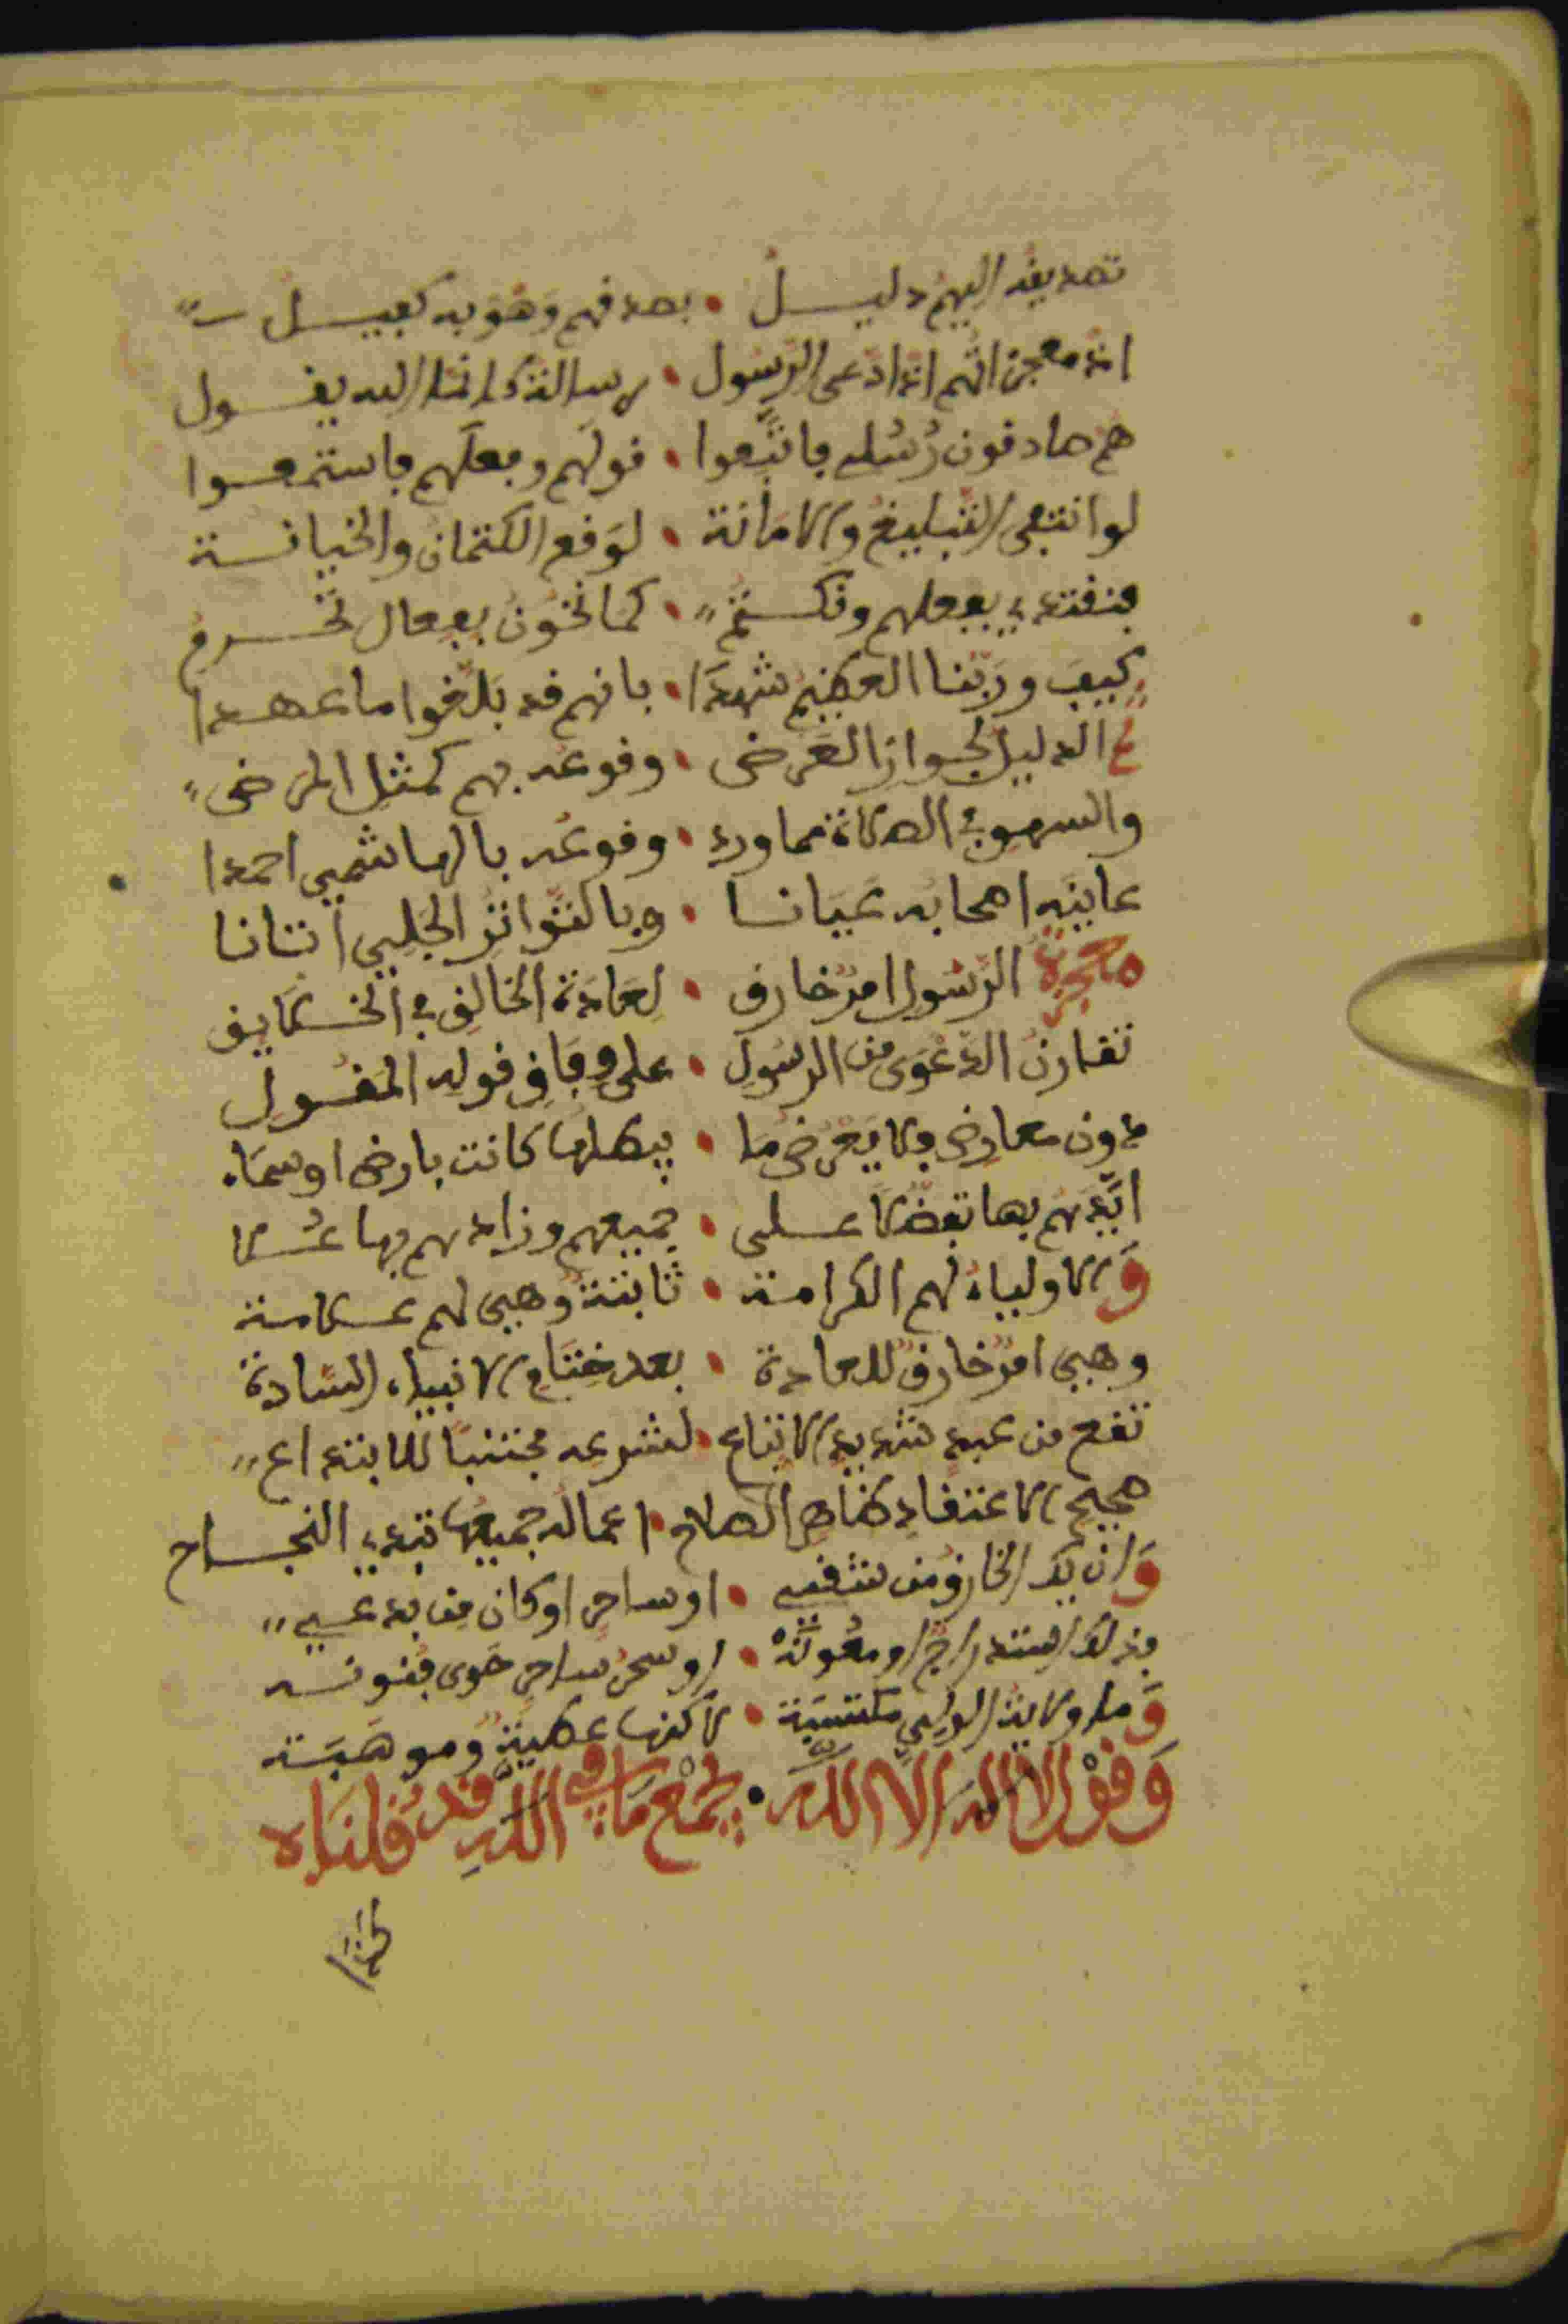 تصديقه اليهم دليل • بصدقهم وهو به كفيل
اذ معجز اثم اذا ادعى الرسول • رسالة كانما الله يقول
هم صادقون رسلي فاتبعوا • قولهم وفعلهم فاستمعوا
لو انتفى التبليغ والامانة • لوقع الكتمان والخيانة
فنقتدي بفعلهم ونكتم • كما نخون بفعال تحرم
كيف وربنا العظيم شهدا • بانهم قد بلغوا ما عهدا
ثم الدليل لجواز العرض • وقوعه بهم كمثل المرض
والسهو في الصلاة مما ورد • وقوعه بالهاشمي احمدا
عاينه اصحابه عيانا • وبالتواتر الجلي اتانا
معجزة الرسول امر خارق • لعادة الخالق في الخلايق
تقارن الدعوى من الرسول • على وفاق قوله المقول
دون معارض ولا يعرض ما • يبطلها كانت بارض او سماء
ايدهم بها تفضلا على • جميعهم وزادهم بها علا
والاولياء لهم الكرامة • ثابتة وهي لهم علامة
وهي امر خارق للعادة • بعد ختام الانبياء السادة
تقع من عبد شديد الاتباع • لشرعه مجتنبا للابتداع
صحيح الاعتقاد ظاهر الصلاح • اعماله جميعها تبدي النجاح
وان يك الخارق من شقي • او ساحر او كان من بدعي
فذلك استدراج او معونة • او سحر ساحر حوى فنونه
وما ولاية الولي مكتسبة • لاكنها عطية وموهبة
وقول لا اله الا الله • يجمع ما في الله قد قلناه